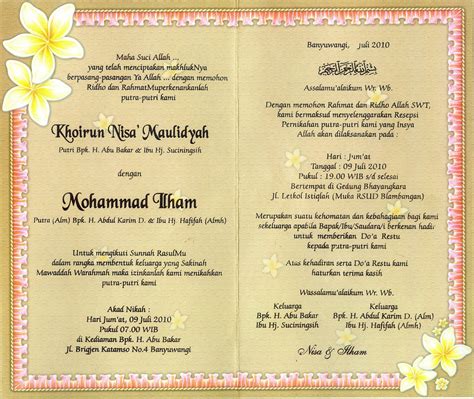 Maha Suci Allah ...
yang telah menciptakan makhlukNya
berpasang-pasangan Ya Allah ... dengan memohon
Ridho dan RahmatMuperkenankanlah
putra-putri kami
Khoirun Nisa' Maulidyah
Putri Bpk. H. Abu Bakar & Ibu Hj. Suciningsih
dengan
Mohammad Ilham
Putra (Alm) Bpk. H. Abdul Karim D. & Ibu Hj. Hafifah (Almh)
Untuk mengikuti Sunnah RasulMu
dalam rangka membentuk keluarga yang Sakinah
Mawaddah Warahmah maka izinkanlah kami menikahkan
putra-putri kami
Akad Nikah :
Hari Jum'at, 09 Juli 2010
Pukul 07.00 WIB
di Kediaman Bpk. H. Abu Bakar
Jl. Brigjen Katamso No.4 Banyuwangi
Banyuwangi, Juli 2010
بسم الله الرحمن الرحيم
Assalamu'alaikum Wr. Wb.
Dengan memohon Rahmat dan Ridho Allah SWT,
kami bermaksud menyelenggarakan Resepsi
Pernikahan putra-putri kami yang Insya
Allah akan dilaksanakan pada :
Hari : Jum'at
Tanggal : 09 Juli 2010
Pukul : 19.00 WIB s/d selesai
Bertempat di Gedung Bhayangkara
Jl. Letkol Istiqlah (Muka RSUD Blambangan)
Merupakan suatu kehomatan dan kebahagian bagi kami
sekeluarga apabila Bapak/Ibu/Saudara/i berkenan hadi
untuk memberikan Do'a Restu
kepada putra-putri kami
Atas kehadiran serta Do'a Restu kami
haturkan terima kasih
Wassalamu'alaikum Wr. Wb.
Keluarga Keluarga
Bpk. H. Abu Bakar Bpk. H. Abdul Karim D. (Alm)
Ibu Hj. Suciningsih Ibu Hj. Hafifah (Almh)
Nisa & Ilham